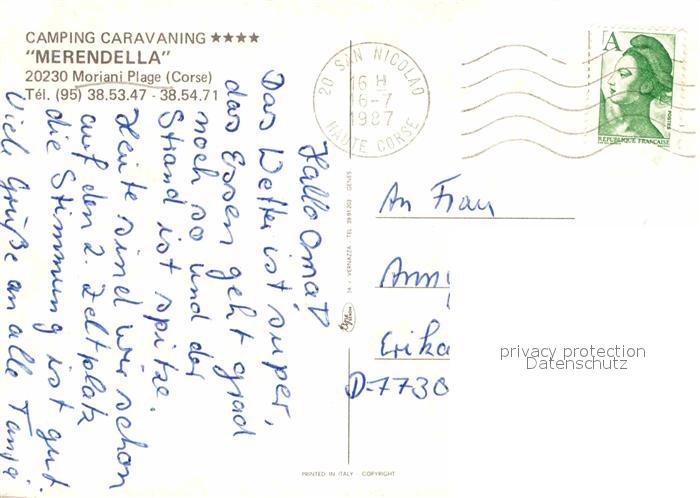 CAMPING CARAVANING ★★★★
"MERENDELLA"
20230 Moriani Plage (Corse)
Tél. (95) 38.53.47 - 38.54.71
Hallo Oma!
Das Wetter ist super,
das Essen geht grad
noch so und der
Strand ist spitze.
Heute sind wir schon
auf den 2. Zeltplatz
die Stimmung ist gut
Viele Grüße an alle Tanja
20 SAN NICOLAO
16 H
16-7
1987
HAUTE CORSE
A
POSTES
REPUBLIQUE FRANÇAISE
An Frau
Anny
Erika
D-7730
privacy protection
Datenschutz
VERNAZZA - TEL. GENES
PRINTED IN ITALY - COPYRIGHT